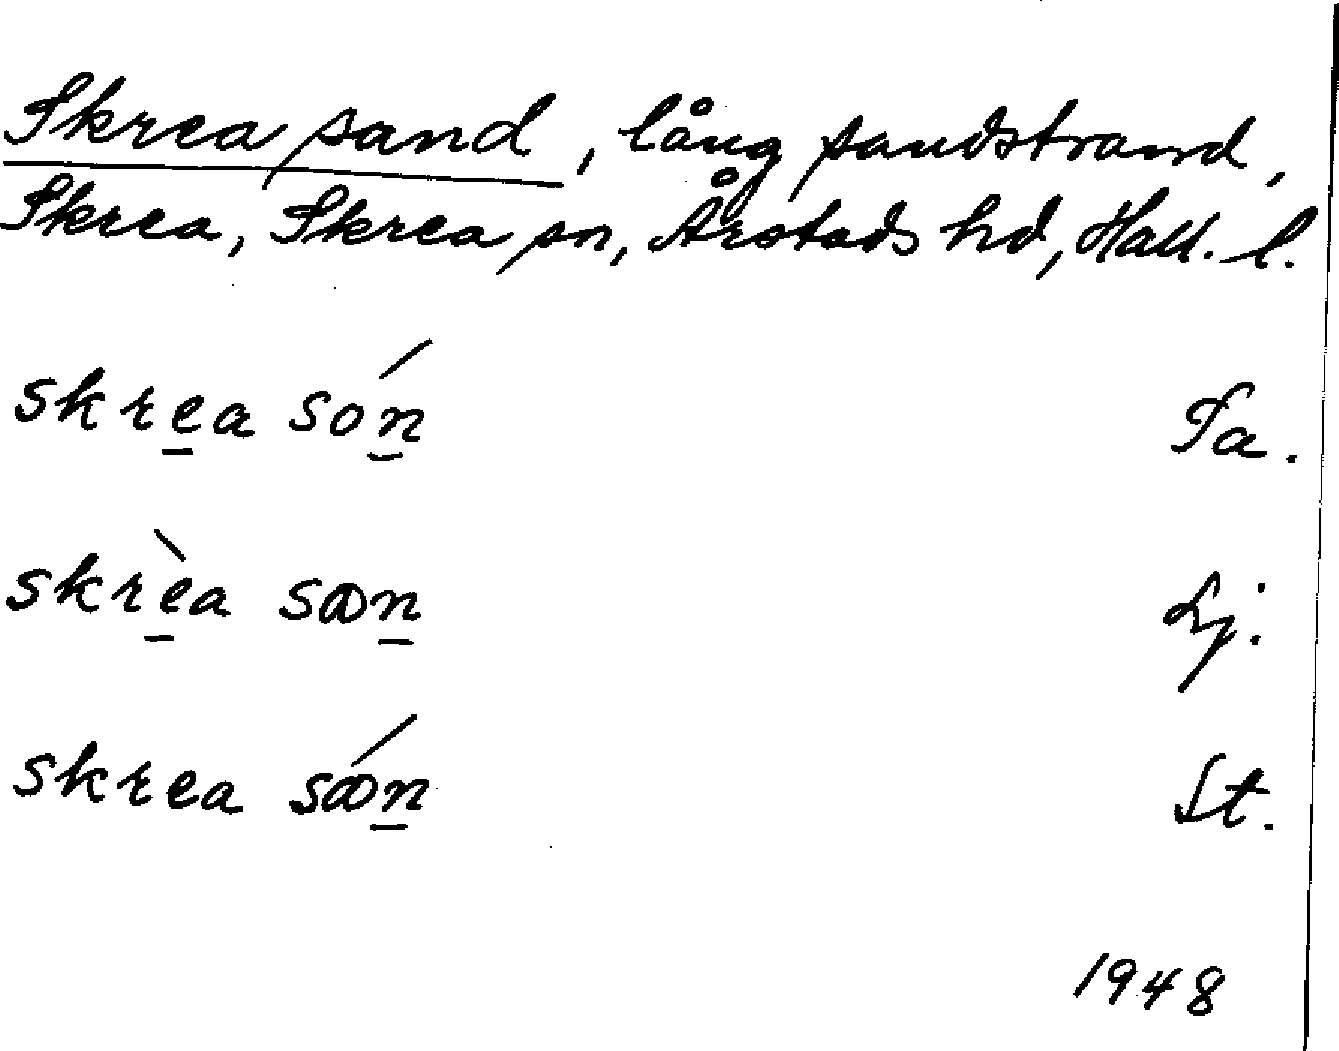 Skrea sand, lång sandstrand,
Skrea, Skrea sn, Årstads hd, Hall. l.
skrea són Ta.
skrèa san Lj.
skrea sán St.
1948